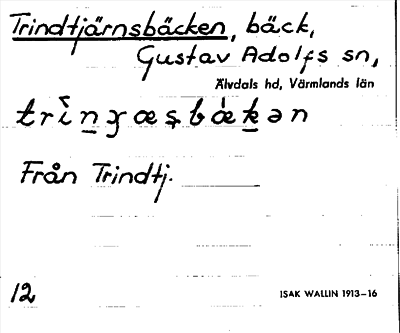 Trindtjärnsbäcken, bäck,
Gustav Adolfs sn,
Älvdals hd, Värmlands län
Från Trindtj.
12 ISAK WALLIN 1913–16